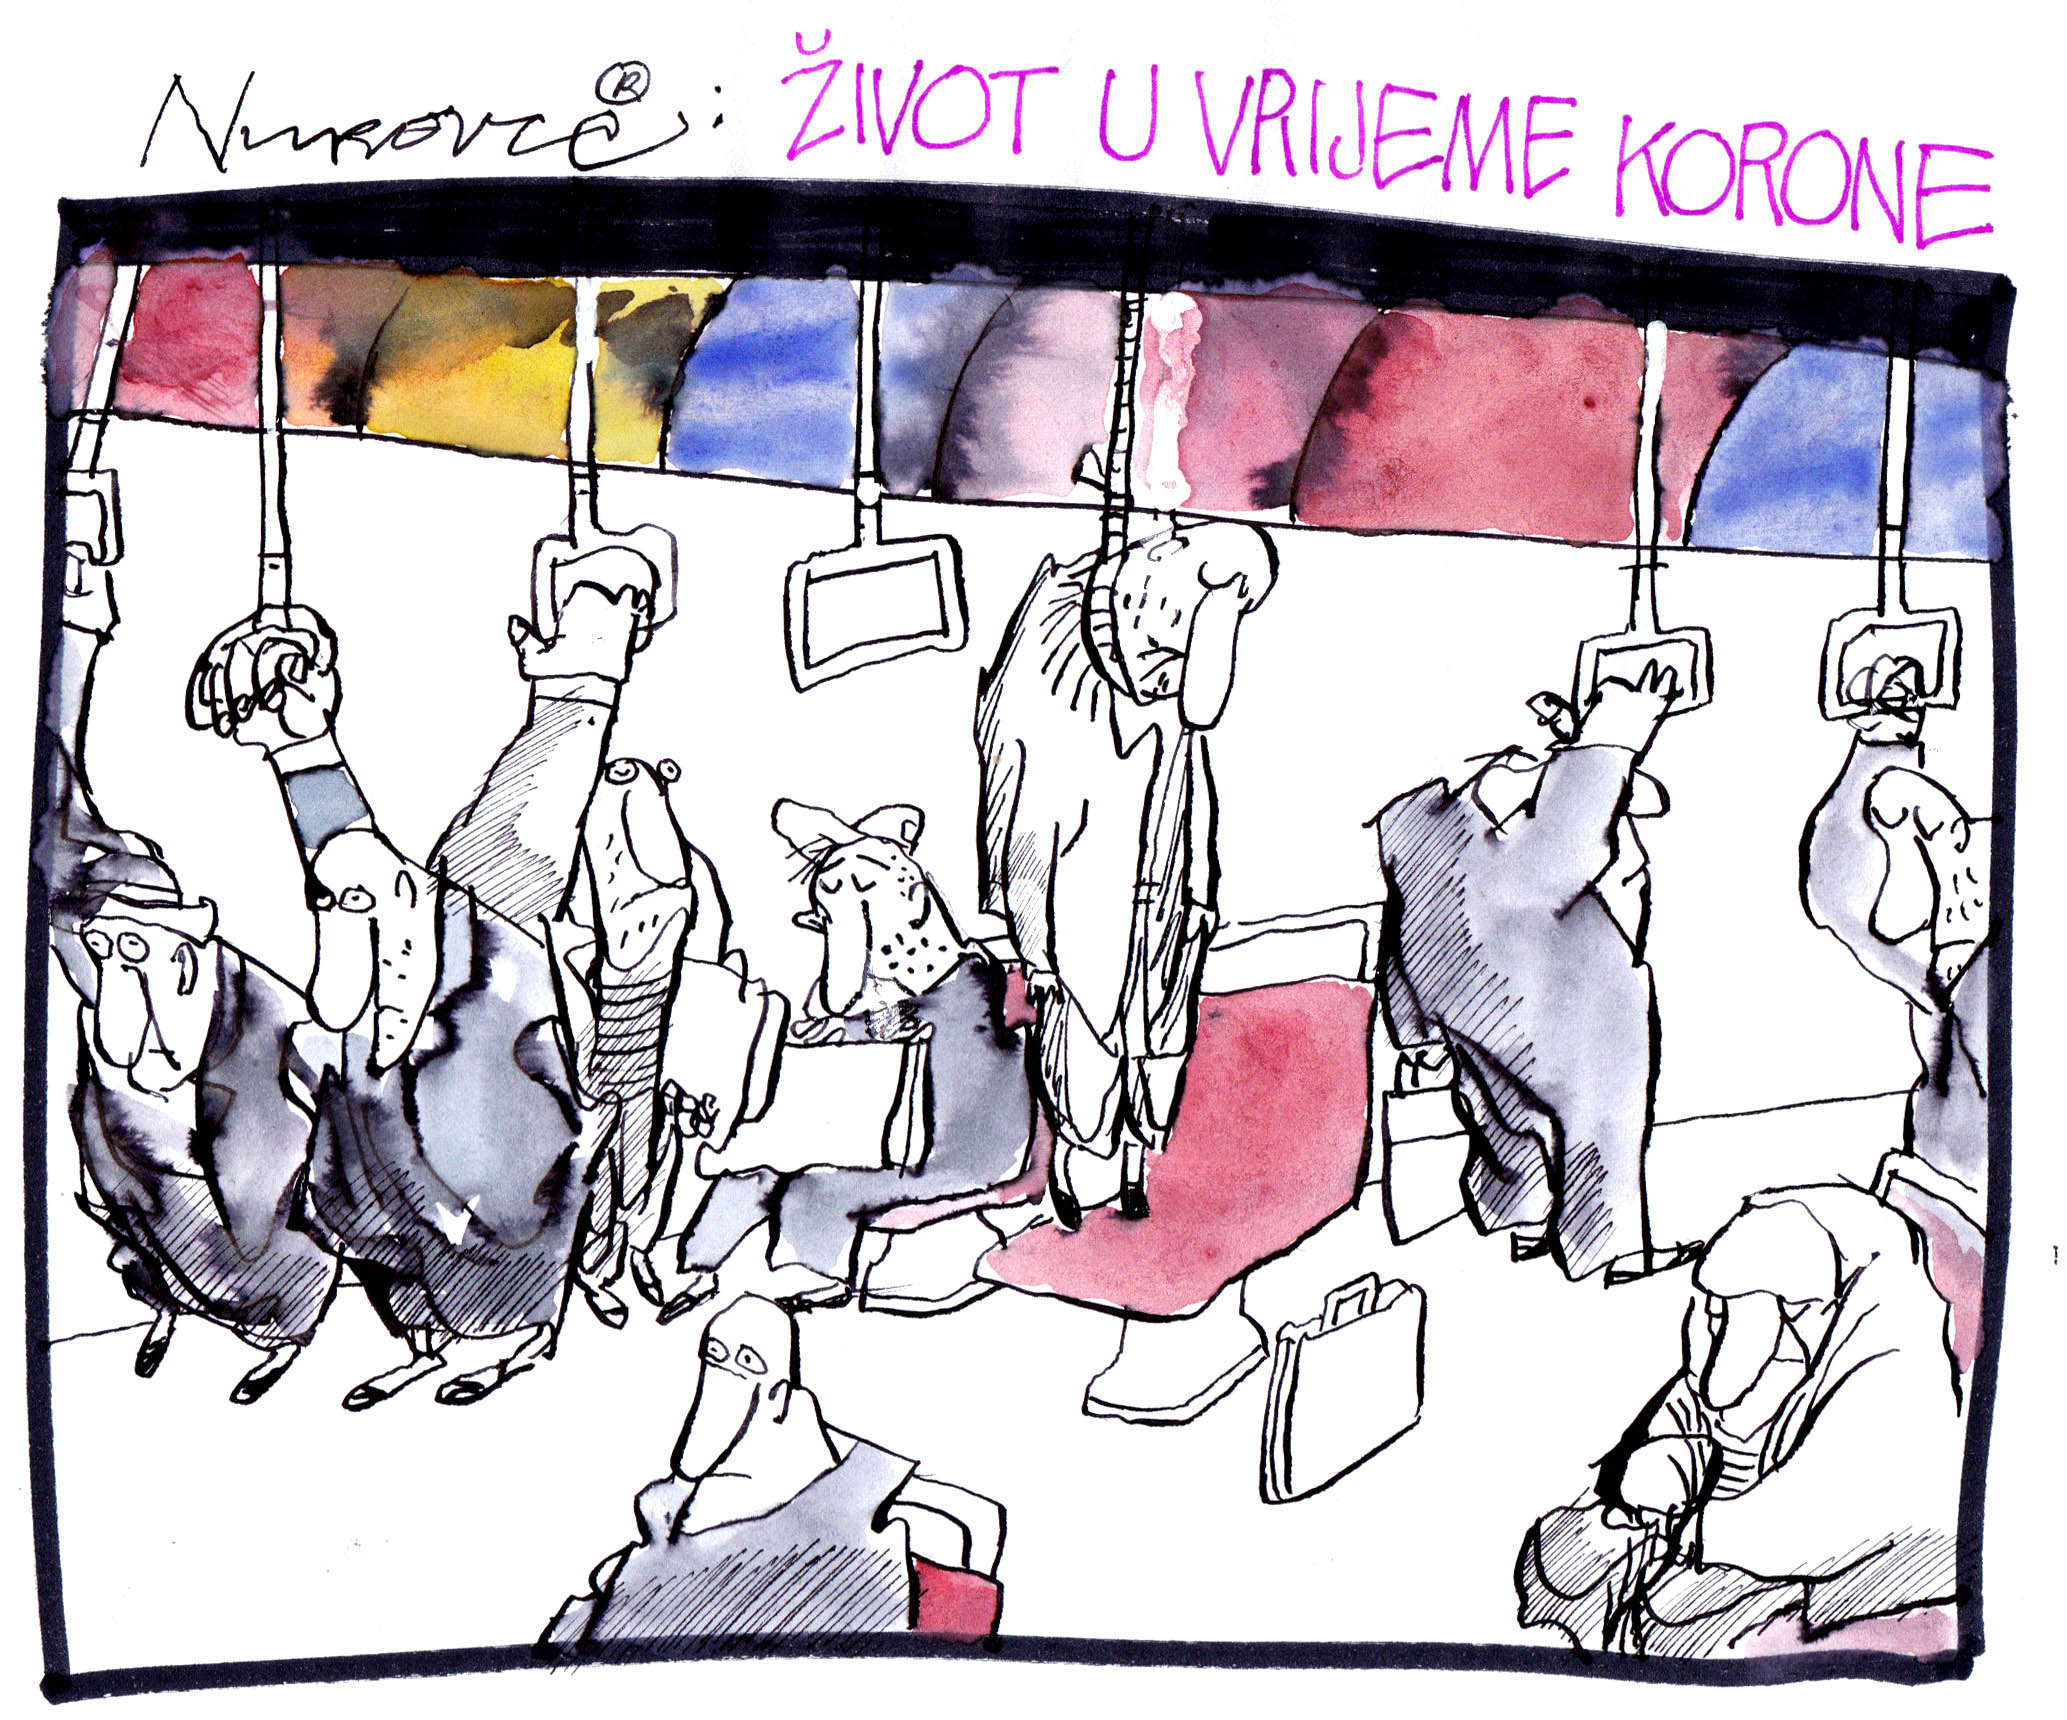 Nurović®: ŽIVOT U VRIJEME KORONE